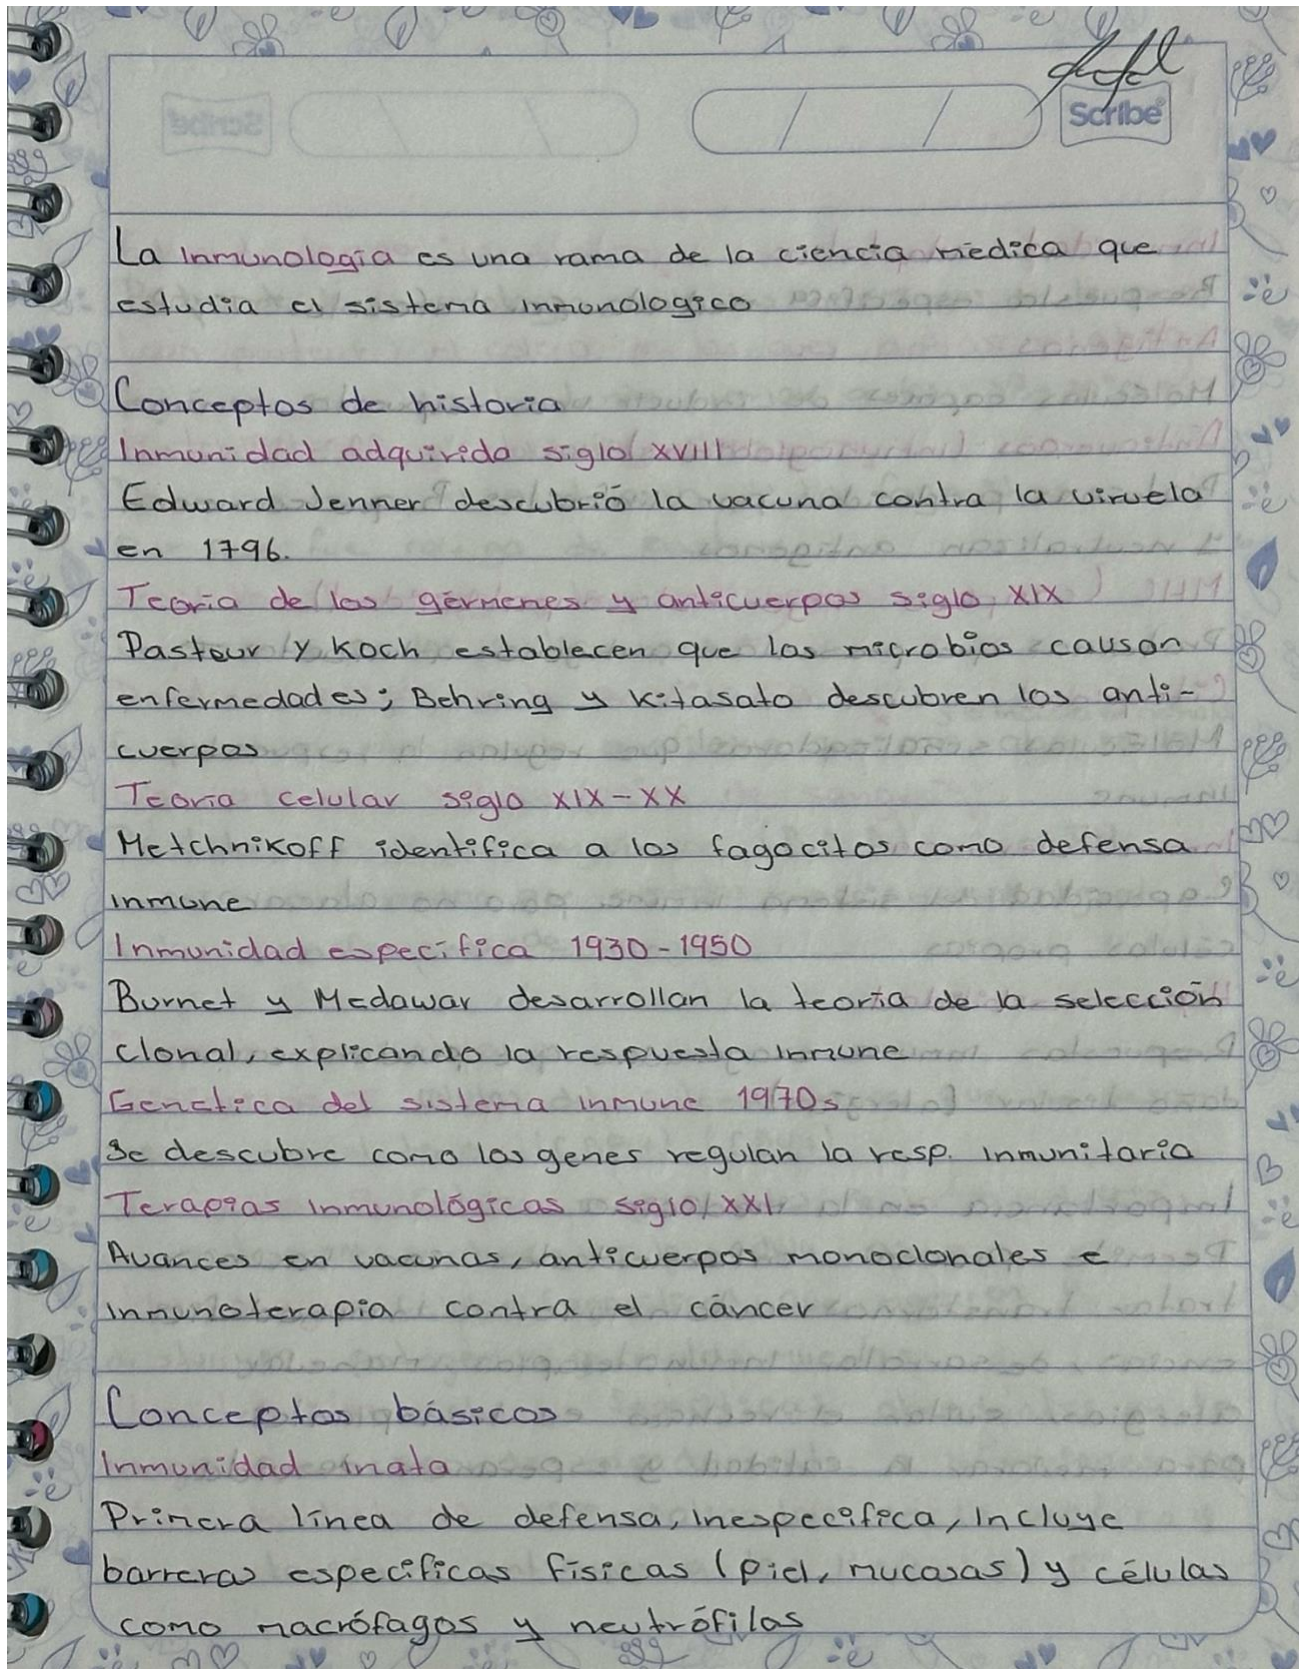 Scribe
La Inmunología es una rama de la ciencia médica que
estudia el sistema inmunologico
Conceptos de historia
Inmunidad adquirida siglo XVIII
Edward Jenner descubrió la vacuna contra la viruela
en 1796.
Teoría de los gérmenes y anticuerpos siglo XIX
Pasteur y Koch establecen que los microbios causan
enfermedades; Behring y Kitasato descubren los anti-
cuerpos
Teoría celular siglo XIX-XX
Metchnikoff identifica a los fagocitos como defensa
inmune
Inmunidad específica 1930-1950
Burnet y Medawar desarrollan la teoría de la selección
clonal, explicando la respuesta inmune
Genética del sistema inmune 1970s
Se descubre como los genes regulan la resp. inmunitaria
Terapias inmunológicas siglo XXI
Avances en vacunas, anticuerpos monoclonales e
inmunoterapia contra el cáncer
Conceptos básicos
Inmunidad inata
Primera línea de defensa, inespecífica, Incluye
barreras especificas físicas (piel, mucosas) y células
como macrófagos y neutrófilos